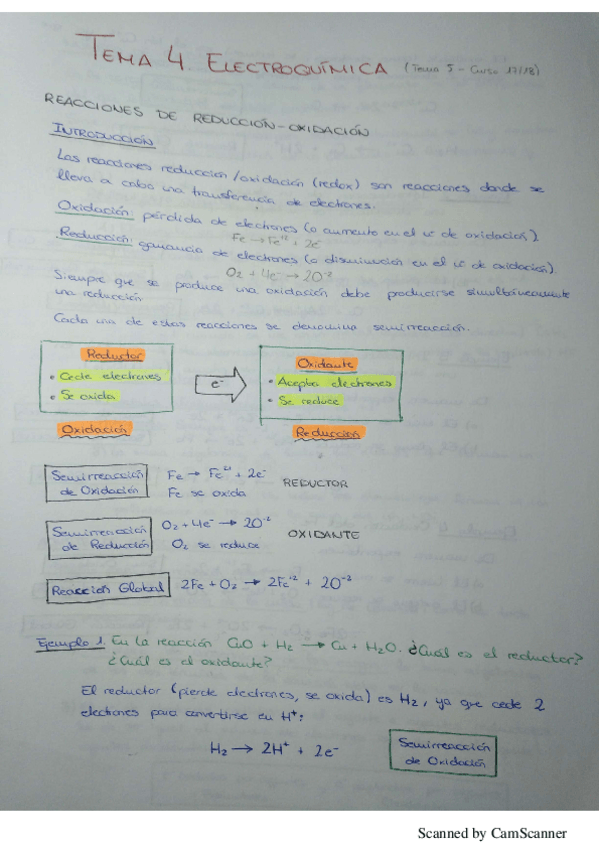 TEMA 4. ELECTROQUÍMICA (Tema 5 - Curso 17/18)
REACCIONES DE REDUCCIÓN-OXIDACIÓN
INTRODUCCIÓN
Las reacciones reducción/oxidación (redox) son reacciones donde se
lleva a cabo una transferencia de electrones.
Oxidación: pérdida de electrones (o aumento en el nº de oxidación).
Fe → Fe⁺² + 2e⁻
Reducción: ganancia de electrones (o disminución en el nº de oxidación).
O₂ + 4e⁻ → 2O⁻²
Siempre que se produce una oxidación debe producirse simultáneamente
una reducción
Cada una de estas reacciones se denomina semirreacción.
Reductor
• Cede electrones
• Se oxida
Oxidación
e⁻
Oxidante
• Acepta electrones
• Se reduce
Reducción
Semirreacción
de Oxidación
Fe → Fe⁺² + 2e⁻
Fe se oxida
REDUCTOR
Semirreacción
de Reducción
O₂ + 4e⁻ → 2O⁻²
O₂ se reduce
OXIDANTE
Reacción Global
2Fe + O₂ → 2Fe⁺² + 2O⁻²
Ejemplo 1. En la reacción CuO + H₂ → Cu + H₂O. ¿Cuál es el reductor?
¿Cuál es el oxidante?
El reductor (pierde electrones, se oxida) es H₂, ya que cede 2
electrones para convertirse en H⁺:
H₂ → 2H⁺ + 2e⁻
Semirreacción
de Oxidación
Scanned by CamScanner